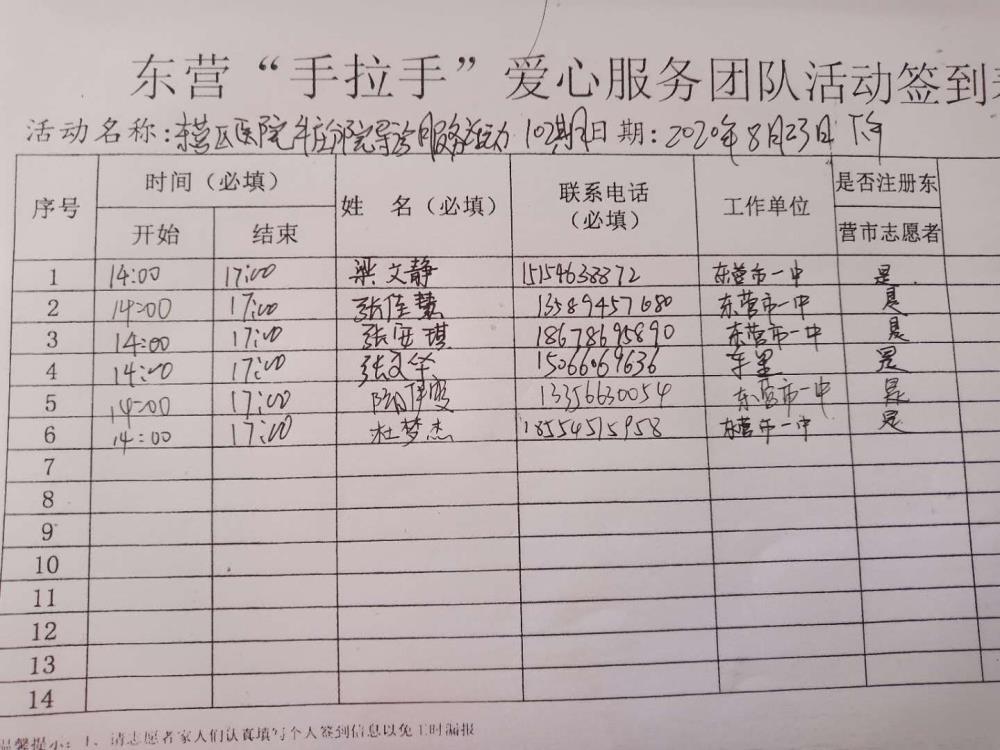 东营“手拉手”爱心服务团队活动签到
活动名称：东营区医院 分院导诊服务活动 102期 日期：2020年8月23日 下午
序号 时间（必填） 姓 名（必填） 联系电话（必填） 工作单位 是否注册东营市志愿者
开始 结束
1 14:00 17:00 梁文静 15154638872 东营市一中 是
2 14:00 17:00 张佳慧 13589457680 东营市一中 是
3 14:00 17:00 张安琪 18678695890 东营市一中 是
4 14:00 17:00 张文华 15066069636 是
5 14:00 17:00 13356630054 东营市一中 是
6 14:00 17:00 杜梦杰 18554515958 东营市一中 是
7
8
9
10
11
12
13
14
温馨提示：1、请志愿者家人们认真填写个人签到信息以免工时漏报